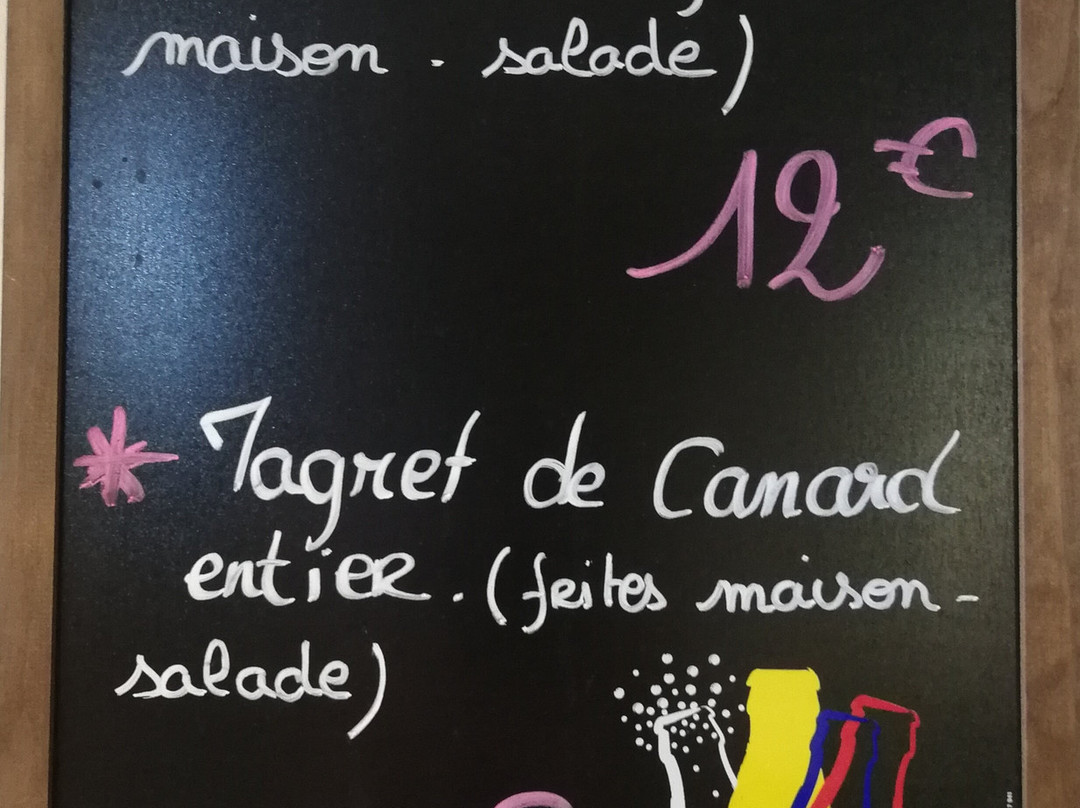 maison - salade)
12€
* Magret de Canard
entier. (frites maison -
salade)